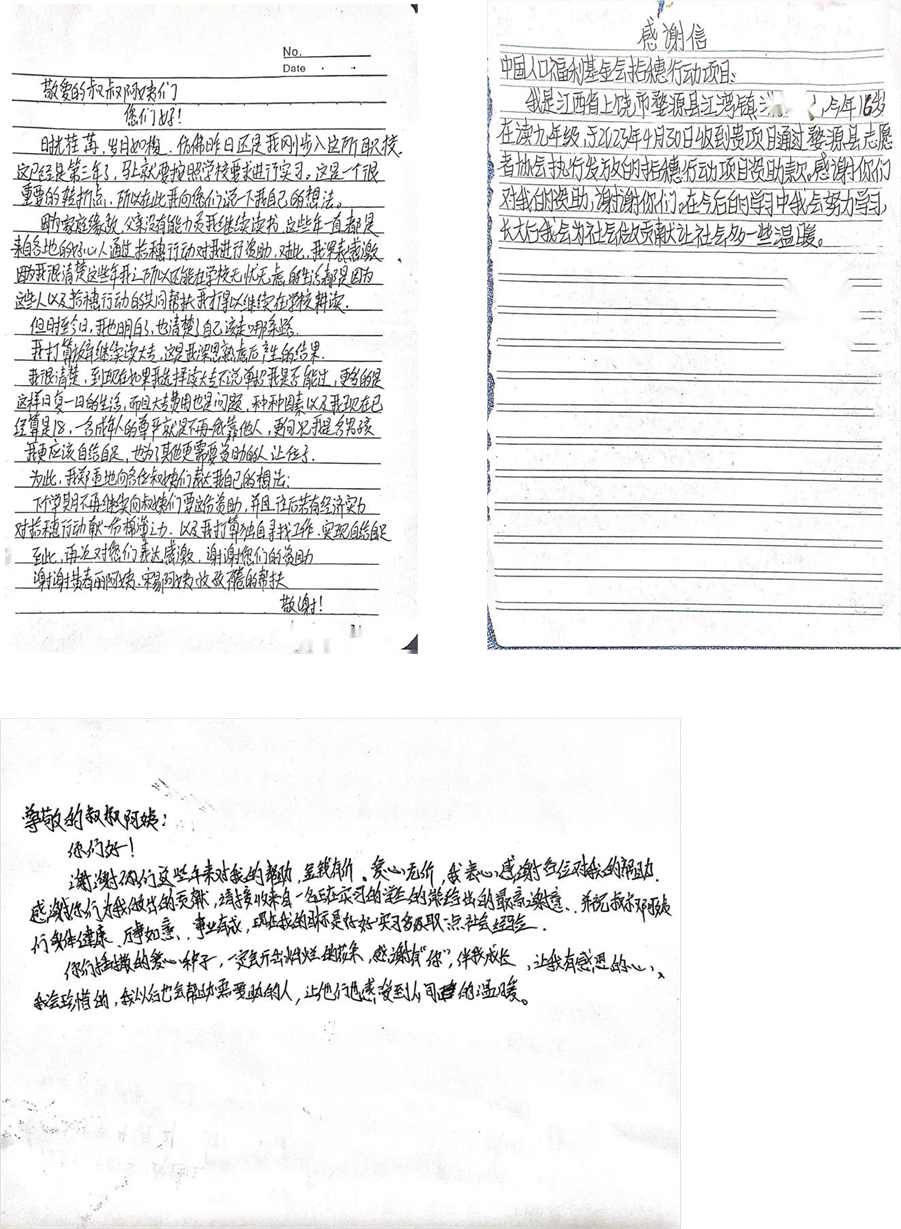 No.
Date
敬爱的叔叔阿姨们
您们好!
日扰荏苒,岁月如梭,仿佛昨日还是我刚步入这所职校
这已经是第三年了,马上就要按照学校要求进行实习,这是一个很
重要的转折点,所以在此我向您们说一下我自己的想法。
因为家庭缘故,父亲没有能力关我继续读书,这些年一直都是
来自各地的好心人通过拾穗行动对我进行资助,对此,我深表感激
因为我很清楚这些年我之所以还能在学校无忧无虑的生活都是因为
这些人以及拾穗行动的共同帮扶我才得以继续在学校耕读.
但时至今日,我也明白了,也清楚了自己该走哪条路.
我打算放弃继续读大专,这是我深思熟虑后产生的结果.
我很清楚,到现在如果我选择读大专不说单招我是否能过,更多的是
这样日复一日的生活,而且大专费用也是问题,种种因素以及我现在已
经算是18,一名成年人的尊严就是不再依靠他人,更何况我是名男孩
我更应该自给自足,也为了其他更需要资助的人让位了.
为此,我郑重地向各位叔姨们表达我自己的想法:
下个学期不再继续向叔姨们要这份资助,并且往后若有经济实力
对拾穗行动献一份绵薄之力.以及我打算独自寻找工作.实现自给自足
至此,再次对您们表达感激,谢谢您们的资助
谢谢黄春丽阿姨、宋易阿姨孜孜不倦的帮扶
敬谢!
感谢信
中国人口福利基金会拾穗行动项目:
我是江西省上饶市婺源县江湾镇,今年16岁
在读九年级,于2023年4月30日收到贵项目通过婺源县志愿
者协会执行发放的拾穗行动项目资助款。感谢你们
对我的资助,谢谢你们。在今后的学习中我会努力学习,
长大后我会为社会做贡献让社会多一些温暖。
尊敬的叔叔阿姨:
你们好!
谢谢你们这些年来对我的帮助,金钱有价,爱心无价,我衷心感谢各位对我的帮助.
感谢你们为我做出的贡献,请接收来自一名正在实习的学生的能给出的最高谢意、并祝叔叔阿姨
们身体健康、万事如意、事业有成,现在我的目标是好好实习多吸取一点社会经验.
你们播撒的爱心种子,一定会开出灿烂的花朵,感谢有"你",伴我成长,让我有感恩的心,
我会珍惜的,我以后也会帮助需要助的人,让他们也感受到人间的温暖。